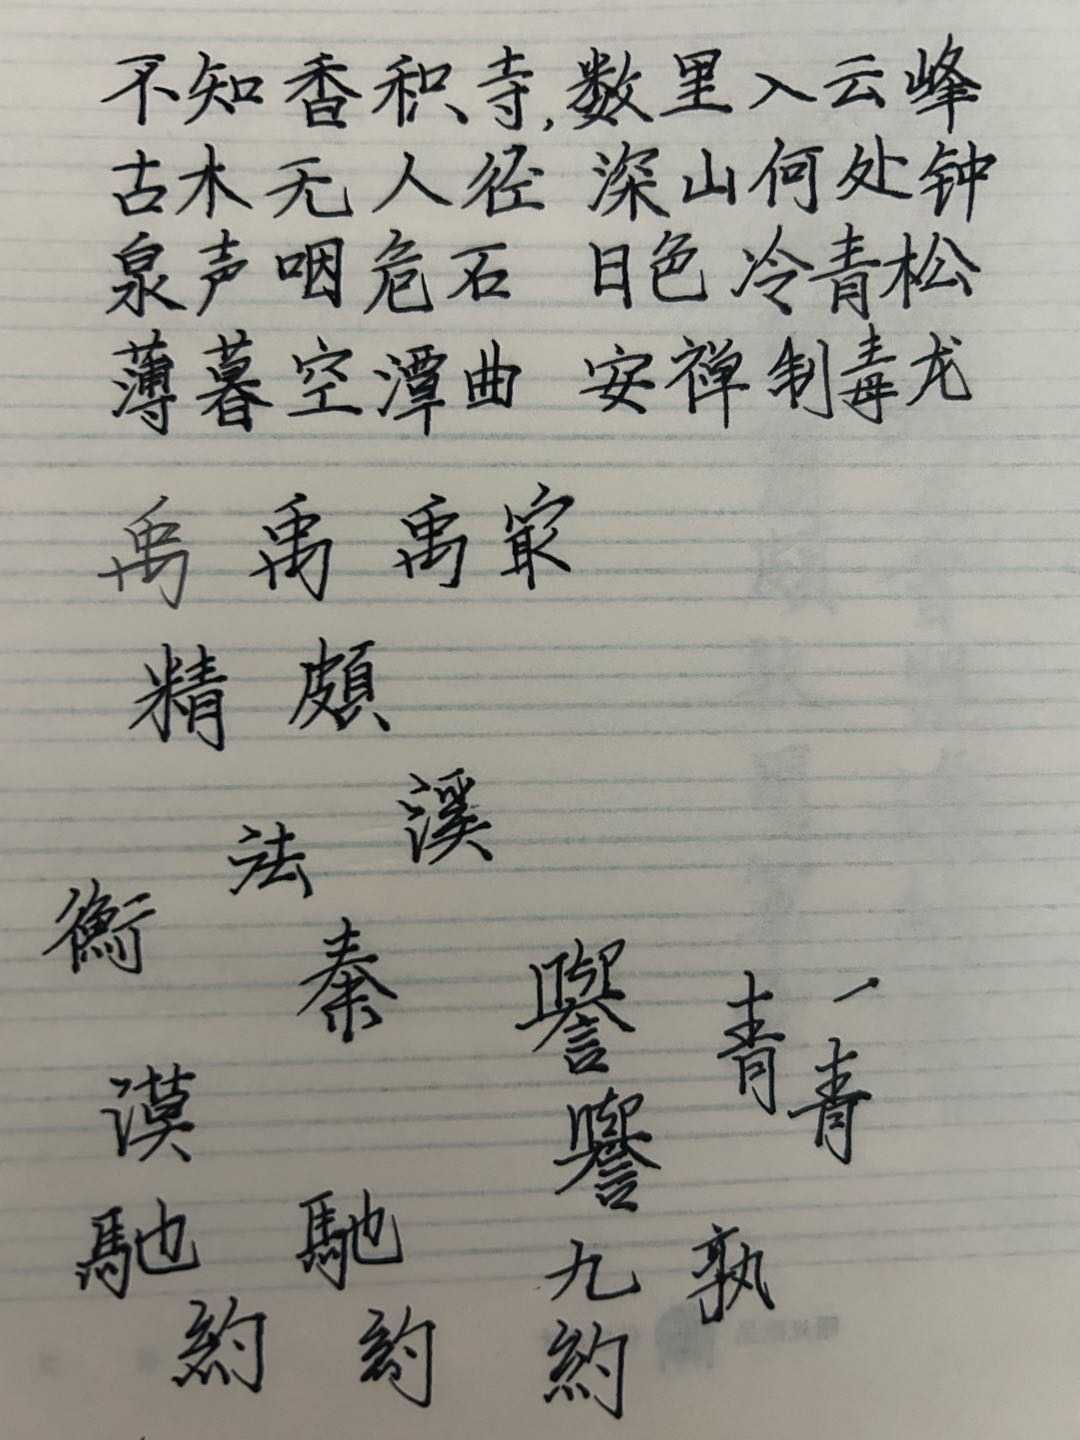 不知香积寺,数里入云峰
古木无人径 深山何处钟
泉声咽危石 日色冷青松
薄暮空潭曲 安禅制毒龙
禹 禹 禹 冣
精 頗
溪
法
衡
秦 譽 青 一
漠 譽 青
馳 馳 九 孰
約 約 約